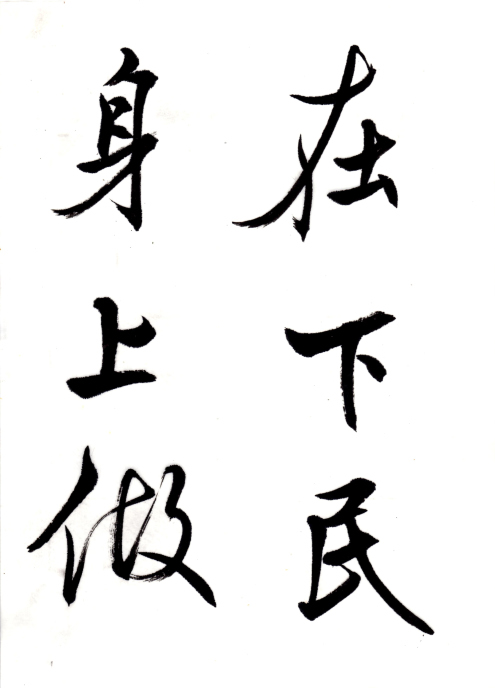 在下民
身上做